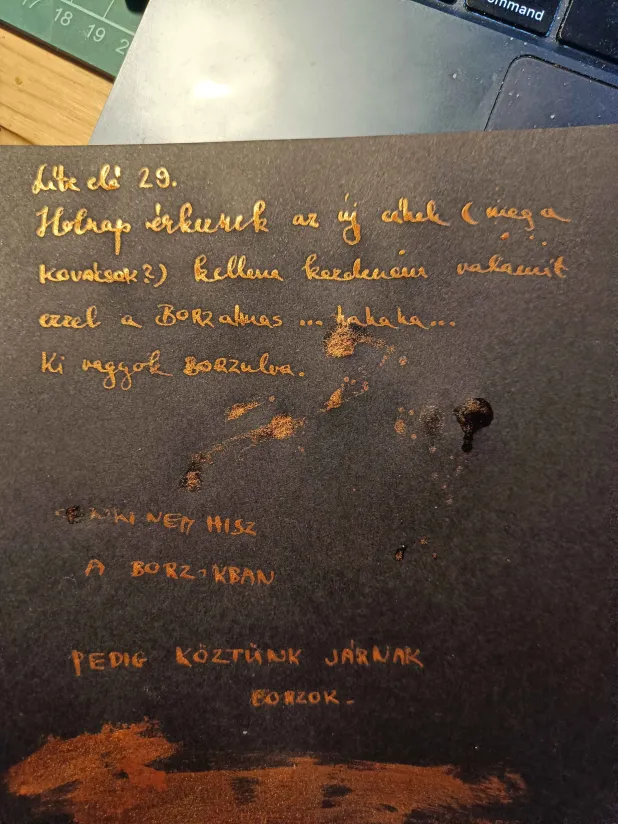 17 18 19 2
command
elő 29.
Holnap érkeznek az új cikek (meg a
kovácsok?) kellene kezdenem valamit
ezzel a BORZalmas ... hahaha...
Ki vagyok BORZulva.
NEM HISZ
A BORZOKBAN
PEDIG KÖZTÜNK JÁRNAK
BORZOK.